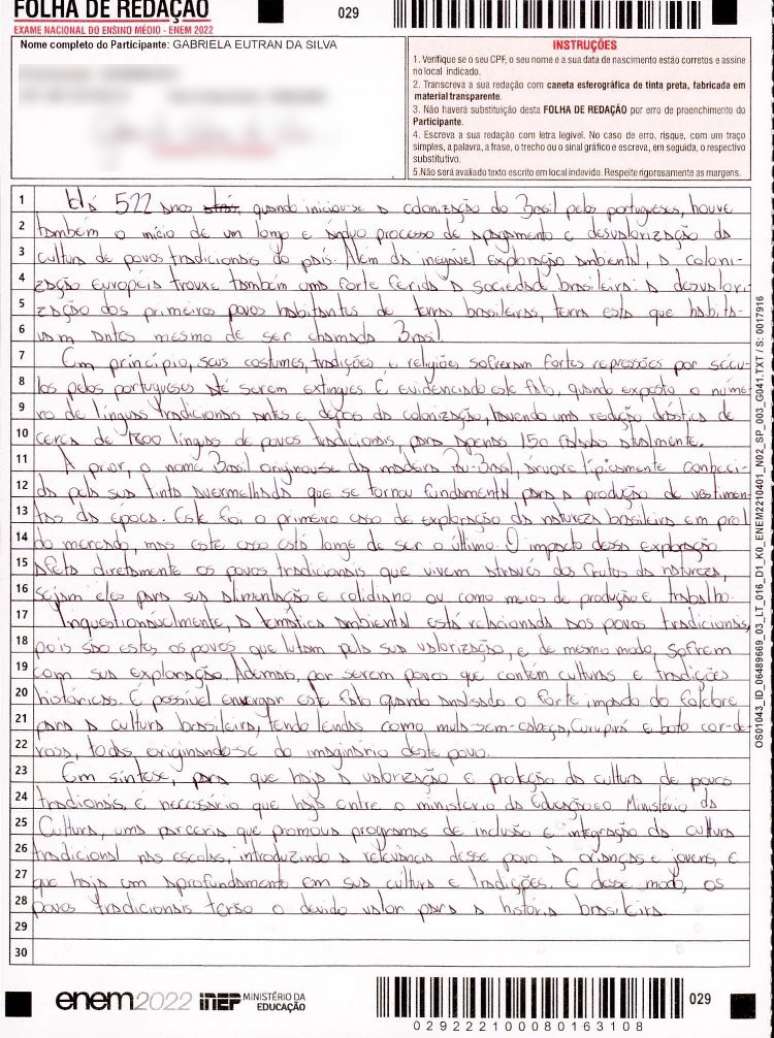 FOLHA DE REDAÇÃO
EXAME NACIONAL DO ENSINO MÉDIO - ENEM 2022
029
Nome completo do Participante: GABRIELA EUTRAN DA SILVA
INSTRUÇÕES
1. Verifique se o seu CPF, o seu nome e a sua data de nascimento estão corretos e assine
no local indicado.
2. Transcreva a sua redação com caneta esferográfica de tinta preta, fabricada em
material transparente.
3. Não haverá substituição desta FOLHA DE REDAÇÃO por erro de preenchimento do
Participante.
4. Escreva a sua redação com letra legível. No caso de erro, risque, com um traço
simples, a palavra, a frase, o trecho ou o sinal gráfico e escreva, em seguida, o respectivo
substitutivo.
5. Não será avaliado texto escrito em local indevido. Respeite rigorosamente as margens.
1 Há 522 anos atrás, quando iniciou-se a colonização do Brasil pelos portugueses, houve
2 também o início de um longo e árduo processo de apagamento e desvalorização da
3 cultura de povos tradicionais do país. Além da inegável exploração ambiental, a coloni-
4 zação Européia trouxe também uma forte ferida à sociedade brasileira: a desvalori-
5 zação dos primeiros povos habitantes de terras brasileiras, terra esta que habita-
6 vam antes mesmo de ser chamada Brasil.
7 Em princípio, seus costumes, tradições e religiões sofreram fortes repressões por sécu-
8 los pelos portugueses até serem extingues. É evidenciado este fato, quando exposto o núme-
9 ro de línguas tradicionais antes e depois da colonização, havendo uma redução drástica de
10 cerca de 1200 línguas de povos tradicionais, para apenas 150 faladas atualmente.
11 A prior, o nome Brasil originou-se da madeira Pau-Brasil, árvore tipicamente conheci-
12 da pela sua tinta avermelhada que se tornou fundamental para a produção de vestimen-
13 tas da época. Este foi o primeiro caso de exploração da natureza brasileira em prol
14 do mercado, mas este caso está longe de ser o último. O impacto dessa exploração
15 afeta diretamente os povos tradicionais que vivem através dos frutos da natureza,
16 sejam eles para sua alimentação e cotidiano ou como meios de produção e trabalho.
17 Inquestionavelmente, a temática ambiental está relacionada aos povos tradicionais,
18 pois são estes, os povos que lutam pela sua valorização, e de mesmo modo, sofrem
19 com sua exploração. Ademais, por serem povos que contém culturas e tradições
20 históricas. É possível enxergar este fato quando analisado o forte impacto do Folclore
21 para a cultura brasileira, tendo lendas como mula-sem-cabeça, Curupira e boto cor-de-
22 rosa, todas originando-se do imaginário deste povo.
23 Em síntese, para que haja a valorização e proteção da cultura de povos
24 tradionais, é necessário que haja entre o ministério da Educação e o Ministério da
25 Cultura, uma parceria que promova programas de inclusão e integração da cultura
26 tradicional nas escolas, introduzindo a relevância desse povo à crianças e jovens, e
27 que haja um aprofundamento em sua cultura e tradições. E desse modo, os
28 povos tradicionais terão o devido valor para a história brasileira.
29
30
OS01043_ID_06489669_03_LT_016_D1_K0_ENEM2210401_N02_SP_003_G041.TXT / S: 0017916
enem2022 inep MINISTÉRIO DA
EDUCAÇÃO
029
029222100080163108